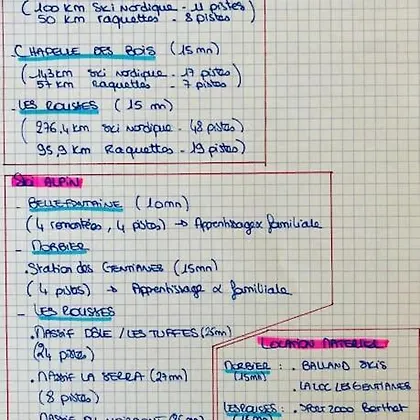 (100 km Ski Nordique - 11 pistes)
50 km Raquettes - 8 pistes)
- CHAPELLE DES BOIS (15 mn)
(143 km Ski Nordique - 17 pistes)
57 km Raquettes - 7 pistes)
- LES ROUSSES (15 mn)
(276,4 km Ski Nordique - 48 pistes)
95,9 km Raquettes - 19 pistes)
SKI ALPIN
- BELLEFONTAINE (10mn)
(4 remontées, 4 pistes) → Apprentissage & familiale
- MORBIER
. Station des GENTIANES (15mn)
(4 pistes) → Apprentissage & familiale
- LES ROUSSES
. MASSIF DÔLE / LES TUFFES (25mn)
(24 pistes)
. MASSIF LA SERRA (27mn)
(8 pistes)
LOCATION MATERIEL
MORBIER : . BALLAND SKIS
(15mn)
LALOC LES GENTIANES
LES ROUSSES : . SPORT 2000 Berthet